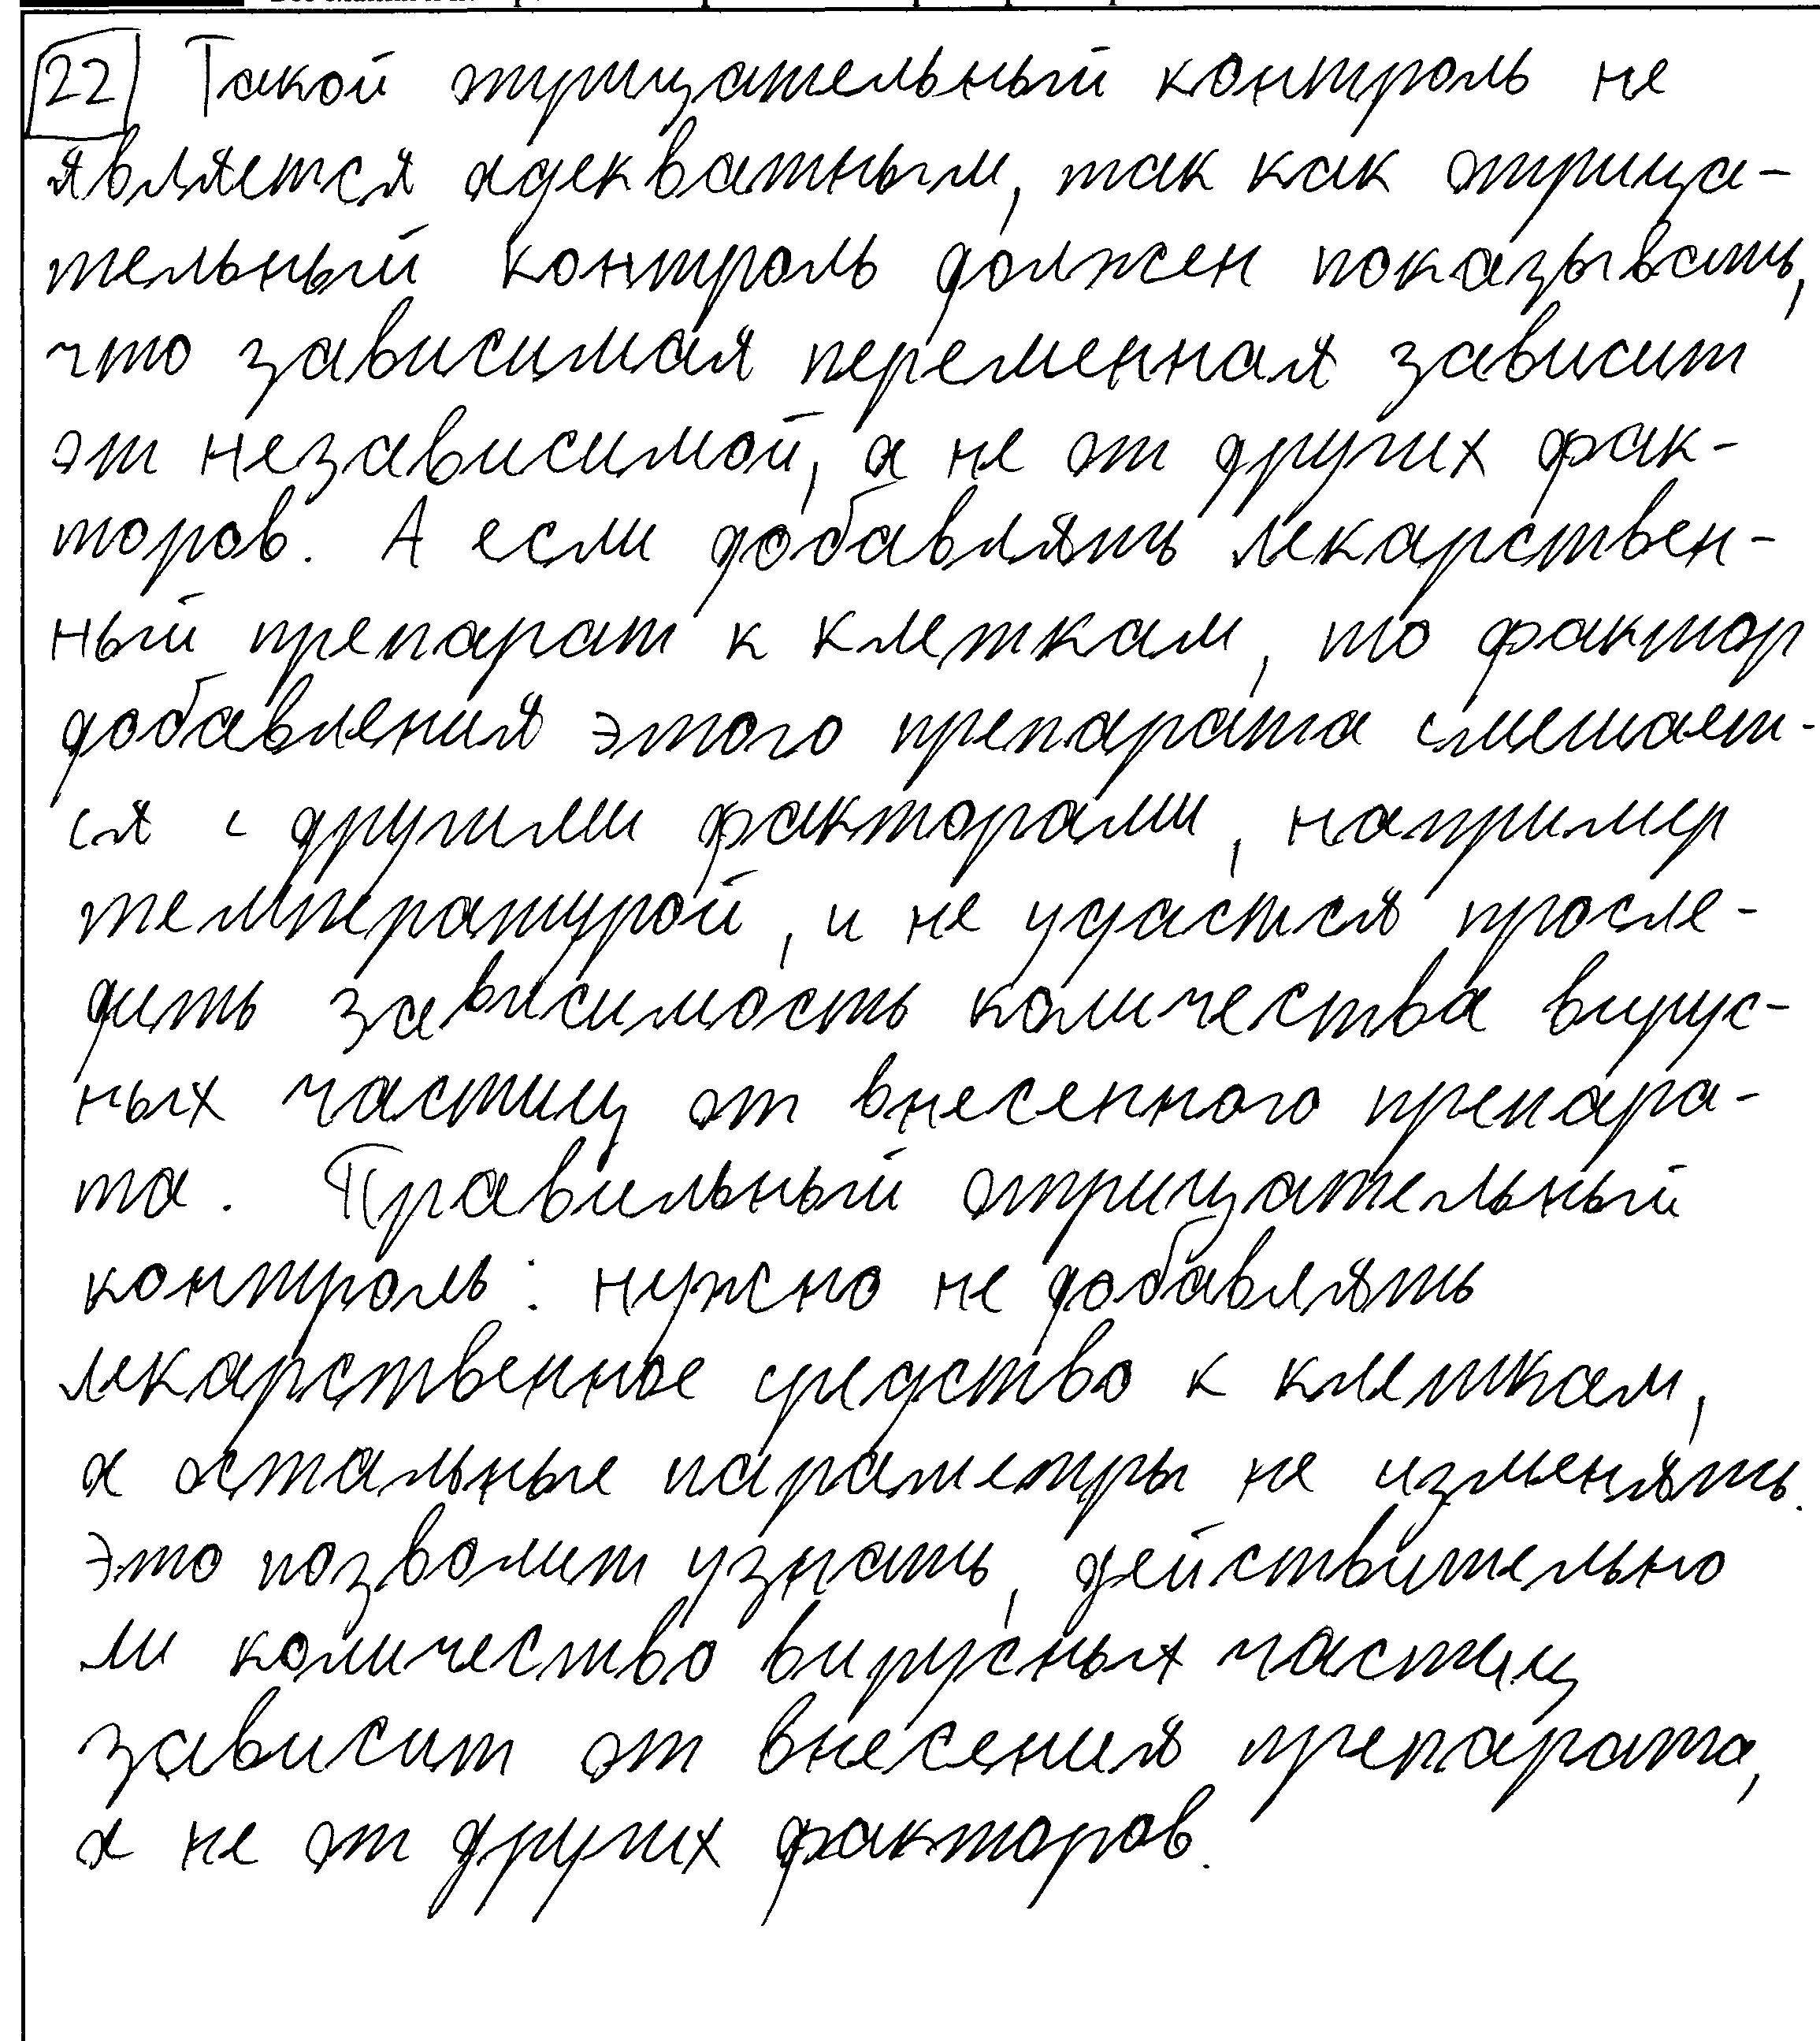 22 Такой отрицательный контроль не
является адекватным, так как отрица-
тельный контроль должен показывать,
что зависимая переменная зависит
от независимой, а не от других фак-
торов. А если добавлять лекарствен-
ный препарат к клеткам, то фактор
добавления этого препарата смешает-
ся с другими факторами, например
температурой, и не удастся просле-
дить зависимость количества вирус-
ных частиц от внесенного препара-
та. Правильный отрицательный
контроль: нужно не добавлять
лекарственное средство к клеткам,
а остальные параметры не изменять.
Это позволит узнать, действительно
ли количество вирусных частиц
зависит от внесения препарата,
а не от других факторов.